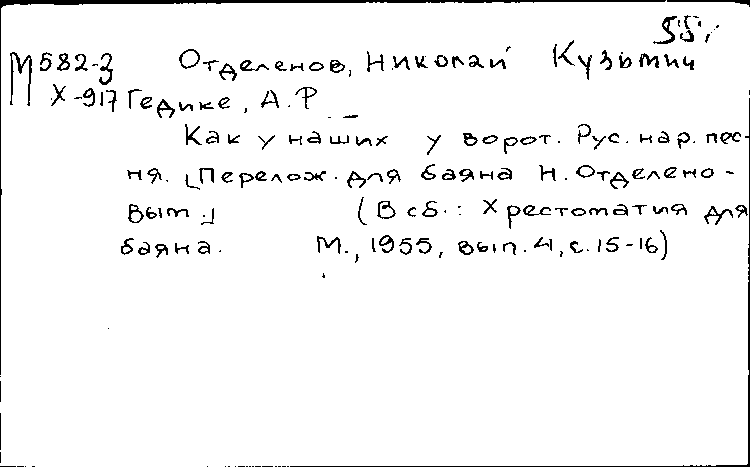 55,
М 582-3 Отделенов, Николай Кузьмич
Х-917 Гедике, А.Ф
Как у наших у ворот. Рус. нар. пес-
ня. [Перелож. для баяна Н. Отделено-
вым.] (В сб.: Хрестоматия для
баяна. М., 1955, вып. 4, с. 15-16)